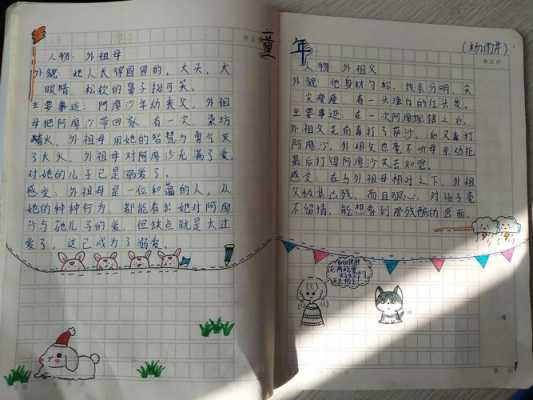 童年
(杨雨萍)
人物：外祖母
外貌：她人长得圆圆的，大头，大
眼睛，松软的鼻子挺可笑。
主要事迹：阿廖沙年幼丧父，外祖
母把阿廖沙带回家，有一次，染坊
着火，外祖母用她的智慧与勇气灭
了大火。外祖母对阿廖沙充满了爱，
对她的儿子已是溺爱了。
感受：外祖母是一位和蔼的人，从
她的种种行为，都能看出她对阿廖
沙与她儿子的爱，但缺点就是太过
爱了，这已成为了溺爱。
人物：外祖父
外貌：他身材匀称，线条分明，尖
尖瘦瘦，有一大堆红的红头发。
主要事迹：在一次阿廖沙
外祖父先看着打了萨沙，后又毒打
阿廖沙，外祖父也毫不听
最后打得阿廖沙失去知觉。
感受：在与外祖母相对之下，外祖
父的凶残，而且狠心，对孩子毫
不留情，能想象到那残酷的画面。